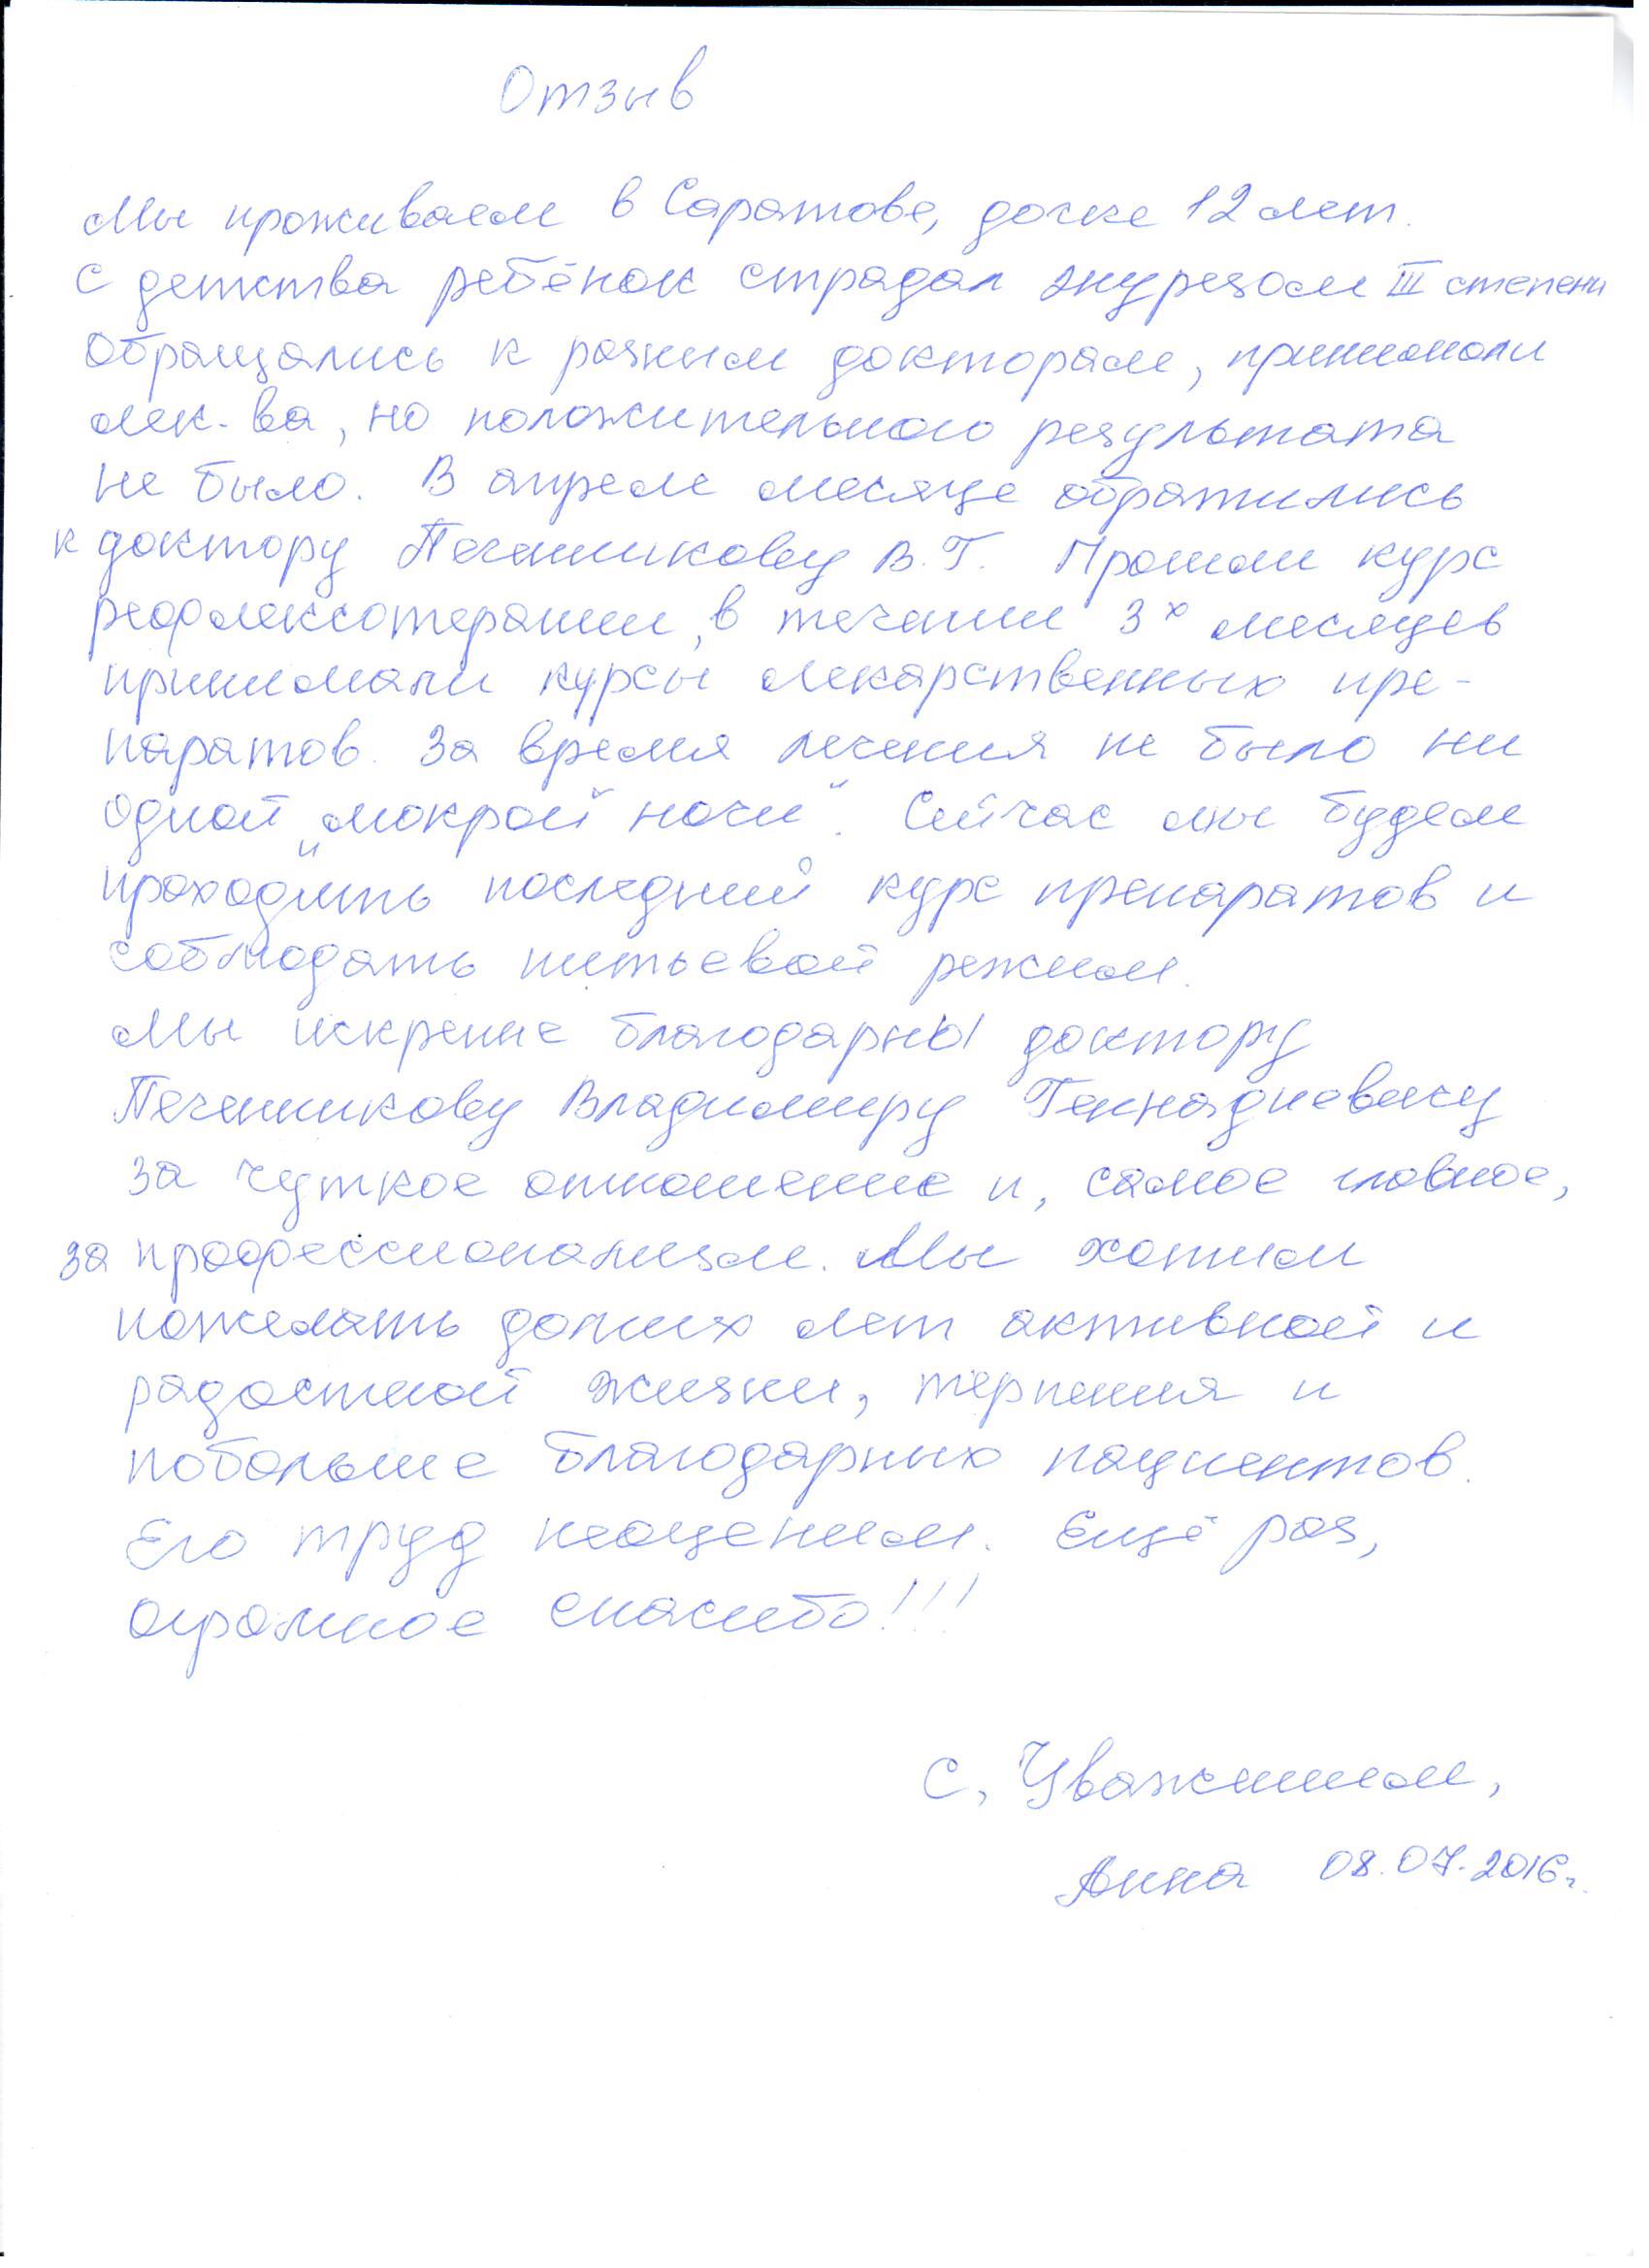 Отзыв
Мы проживаем в Саратове, дочке 12 лет.
С детства ребёнок страдал энурезом III степени
Обращались к разным докторам, принимали
лек-ва, но положительного результата
не было. В апреле месяце обратились
к доктору Печенникову В.Г. Прошли курс
рефлексотерапии, в течении 3х месяцев
принимали курсы лекарственных пре-
паратов. За время лечения не было ни
одной „мокрой ночи“. Сейчас мы будем
проходить последний курс препаратов и
соблюдать питьевой режим.
Мы искренне благодарны доктору
Печенникову Владимиру Геннадиевичу
за чуткое отношение и, самое главное,
за профессионализм. Мы хотим
пожелать долгих лет активной и
радостной жизни, терпения и
побольше благодарных пациентов.
Его труд неоценим. Ещё раз,
огромное спасибо!!!
С, Уважением,
Анна 08.07.2016г.